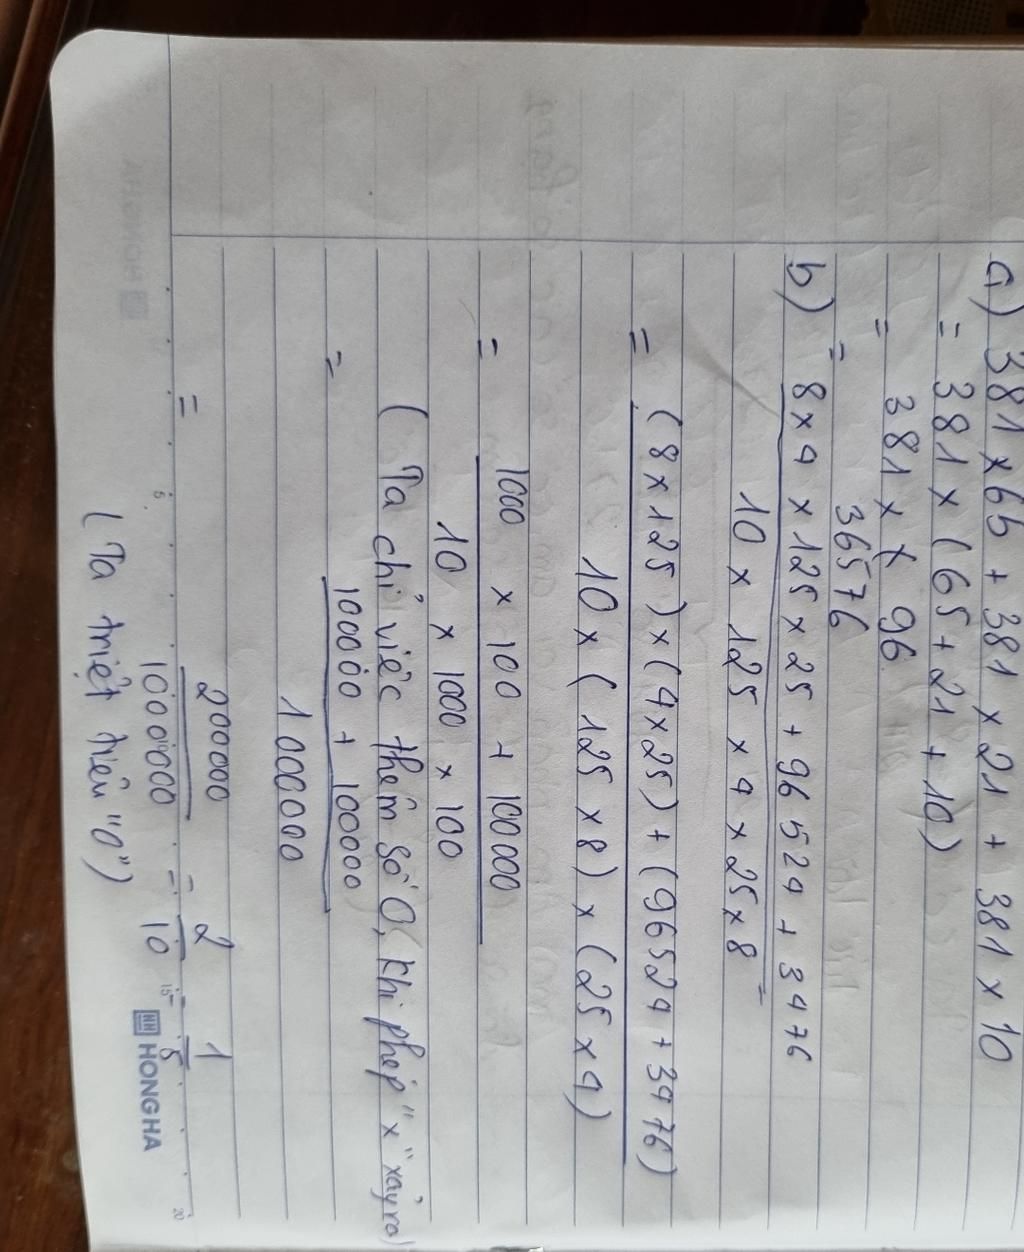 a) 381 × 65 + 381 × 21 + 381 × 10
= 381 × (65 + 21 + 10)
= 381 × ( 96
= 36576
b) 8 × 4 × 125 × 25 + 96 524 + 3476
10 × 125 × 4 × 25 × 8 =
= (8 × 125) × (4 × 25) + (96524 + 3476)
10 × ( 125 × 8) × (25 × 4)
= 1000 × 100 + 100 000
10 × 1000 × 100
( Ta chỉ việc thêm số 0, khi phép "×" xảy ra)
= 100000 + 100000
1 000000
= 200000 = 2 = 1
1000000 10 5
( Ta triệt tiêu "0")
HH HONG HA
5 10 15 20